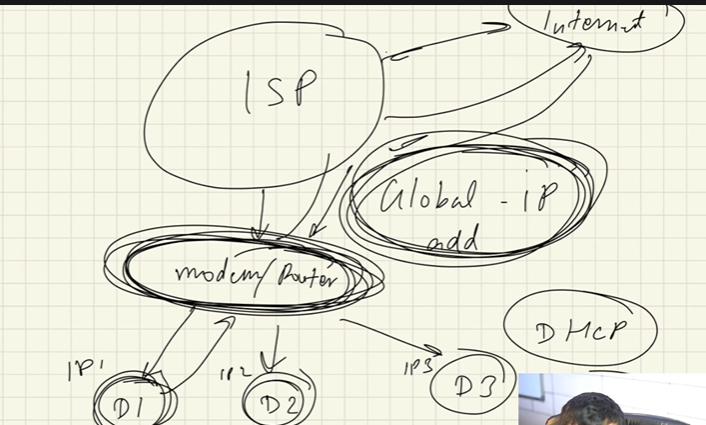 Internet
ISP
Global - iP
add
modem/Router
DHCP
IP1
D1
IP2
D2
IP3
D3